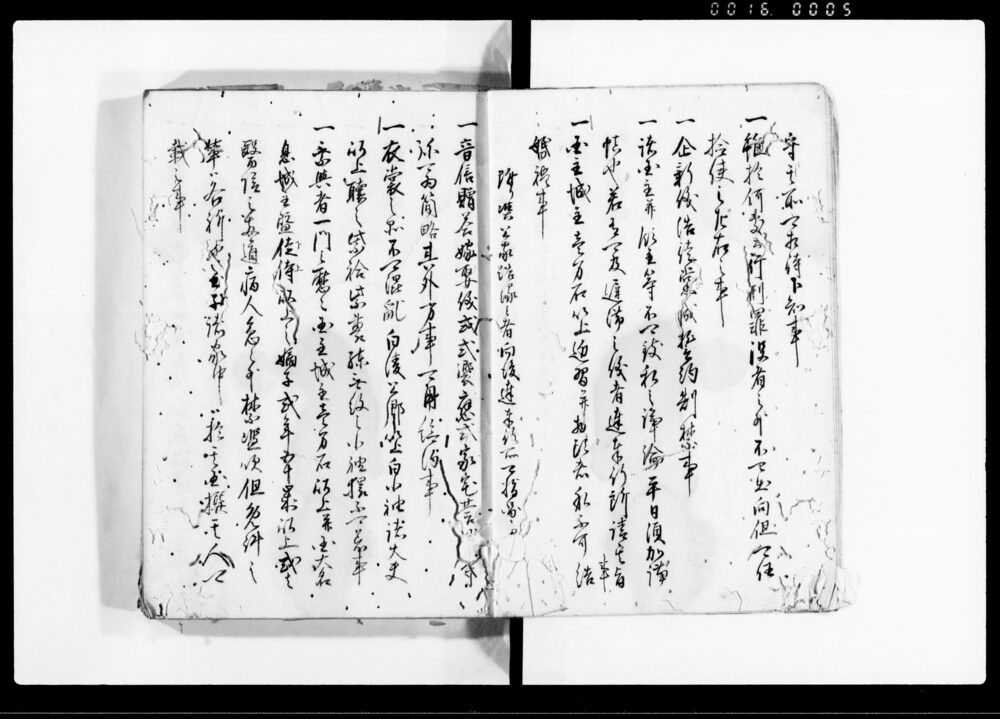 0016 0005
守其所可相待下知事
一雖於何変而行刑罪役者之外不可出向但可任
捡使之左右之事
一企新儀結徒党成誓約制禁事
一諸国主并領主等不可致私之諍論平日須加謹
慎也若有可及遅滞之儀者達奉行所請其旨事
一国主城主壱万石以上近習并物頭者私不可結
婚礼事
附与公家結縁之者向後達奉行所可指図事
一音信贈答嫁娶儀式或饗応或家宅営作
弥可為簡略其外万事可用倹約事
一衣裳之品不可混乱白綾公卿以上白小袖諸大夫
以上聴之紫袷紫裏練無紋之小袖猥不可着事
一乗輿者一門之歴々国主城主壱万石以上并国大名
息城主曁侍従以上之嫡子或年五十歳以上或
醫陰之両道病人免之外禁濫吹但免許之
輩者各別也至于諸家中者於其国撰其人可
載之事